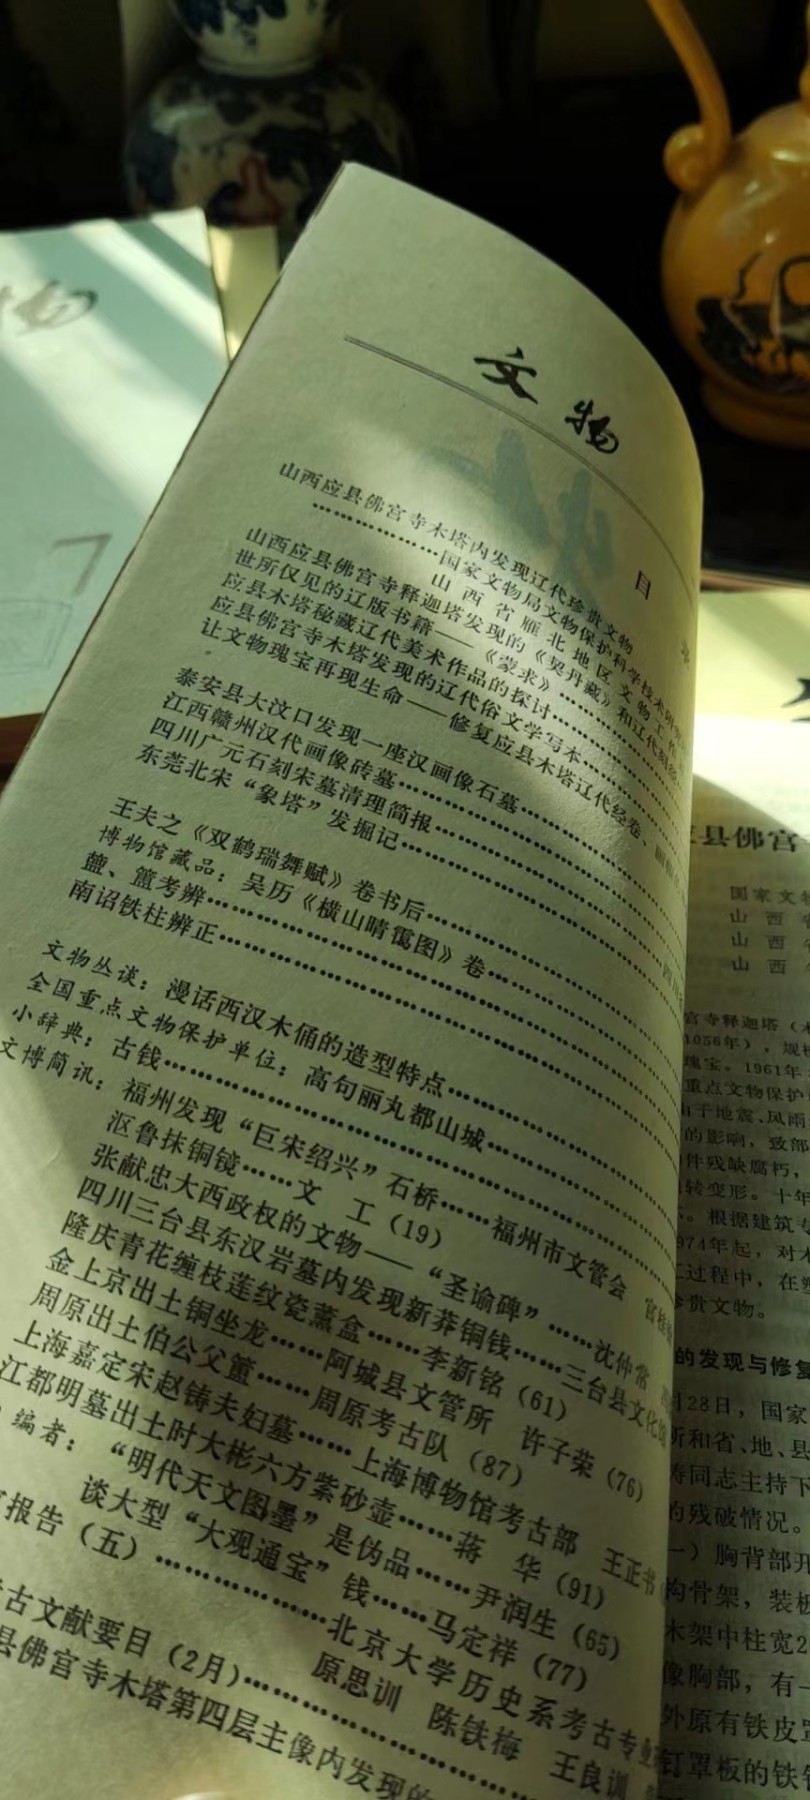 物
文物
目
山西应县佛宫寺木塔内发现辽代珍贵文物
……………国家文物局文物保护科学技术研究
山西省雁北地区文物工作
山西应县佛宫寺释迦塔发现的《契丹藏》和辽代刻经
世所仅见的辽版书籍——《蒙求》……
应县木塔秘藏辽代美术作品的探讨……
应县佛宫寺木塔发现的辽代俗文学写本……
让文物瑰宝再现生命——修复应县木塔辽代经卷、
泰安县大汶口发现一座汉画像石墓……
江西赣州汉代画像砖墓……
四川广元石刻宋墓清理简报……
东莞北宋“象塔”发掘记……
王夫之《双鹤瑞舞赋》卷书后……
博物馆藏品：吴历《横山晴霭图》卷……
盬、簠考辨……
南诏铁柱辨正……
文物丛谈：漫话西汉木俑的造型特点……
全国重点文物保护单位：高句丽丸都山城……
小辞典：古钱……
文博简讯：福州发现“巨宋绍兴”石桥……福州市文管会
沤鲁抹铜镜……文 工（19）
张献忠大西政权的文物——“圣谕碑”……沈仲常
四川三台县东汉岩墓内发现新莽铜钱……三台县文化馆
隆庆青花缠枝莲纹瓷薰盒……李新铭（61）
金上京出土铜坐龙……阿城县文管所 许子荣（76）
周原出土伯公父簠……周原考古队（87）
上海嘉定宋赵铸夫妇墓……上海博物馆考古部 王正书
江都明墓出土时大彬六方紫砂壶……蒋 华（91）
编者：“明代天文图墨”是伪品……尹润生（65）
谈大型“大观通宝”钱……马定祥（77）
报告（五）……北京大学历史系考古专业
原思训 陈铁梅 王良训
古文献要目（2月）……
县佛宫寺木塔第四层主像内发现的
县佛宫
国家文物
山 西 省
山 西 省
山 西
宫寺释迦塔（木
1056年），规模
瑰宝。1961年
重点文物保护单
由于地震、风雨
的影响，致部
件残缺腐朽，
转变形。十年
。根据建筑专
974年起，对木
工过程中，在塑
珍贵文物。
的发现与修复
月28日，国家
所和省、地、县
同志主持下
的残破情况。
一）胸背部开
构骨架，装板
木架中柱宽2
像胸部，有一
外原有铁皮罩
钉罩板的铁钉